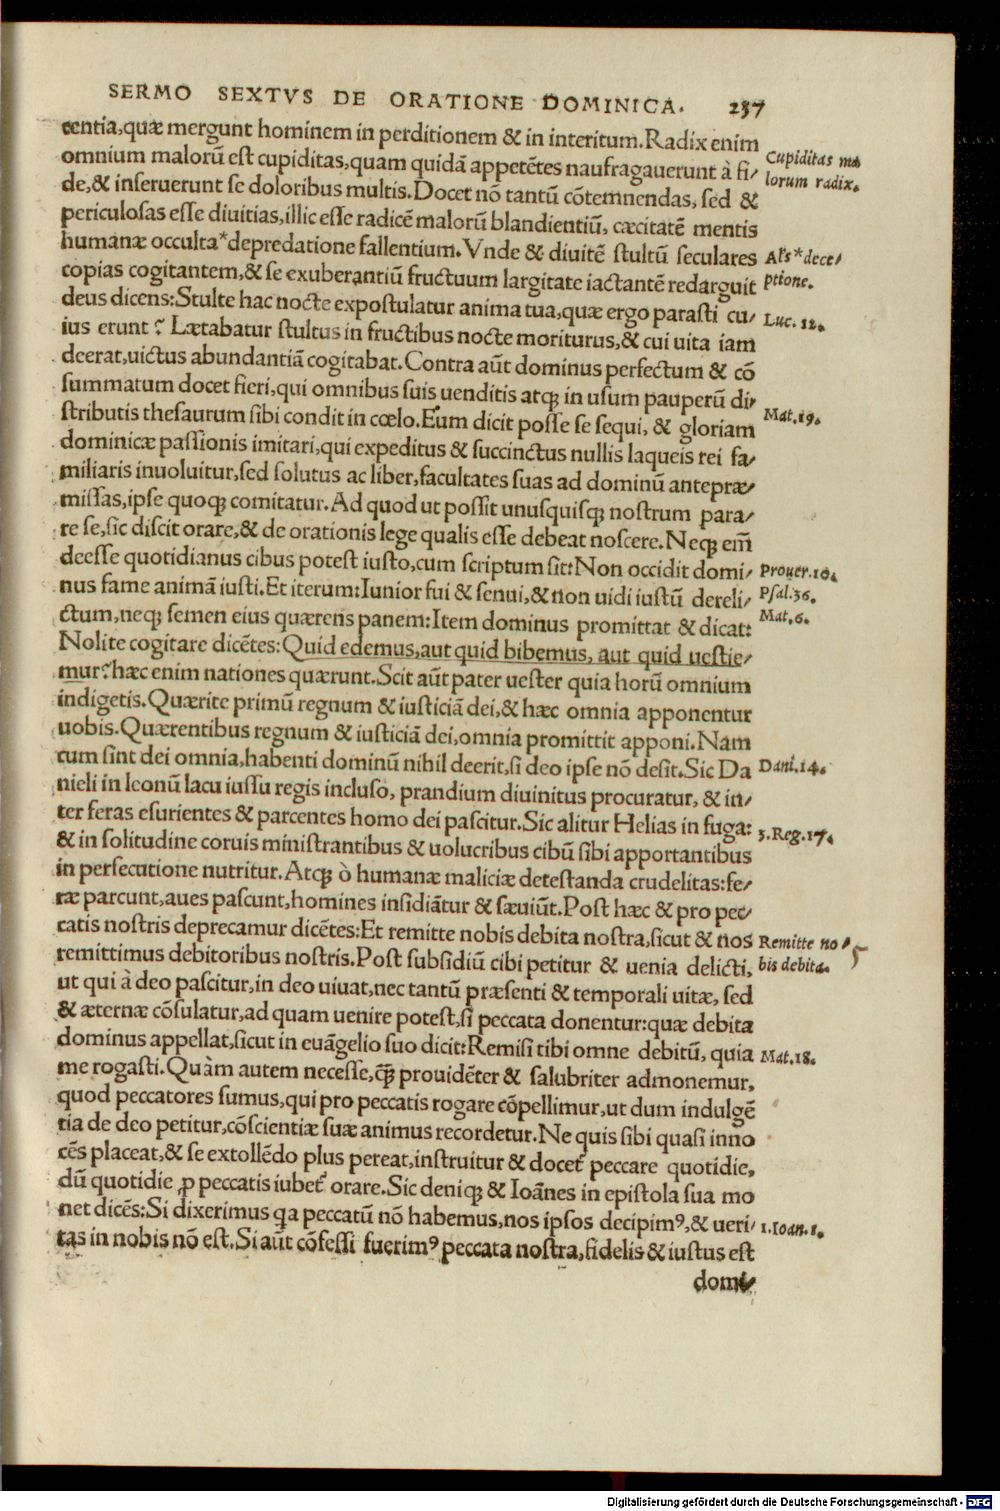 SERMO SEXTVS DE ORATIONE DOMINICA. 237
centia,quæ mergunt hominem in perditionem & in interitum.Radix enim
omnium malorũ est cupiditas,quam quidã appetẽtes naufragauerunt à fi/
de,& inseruerunt se doloribus multis.Docet nõ tantũ cõtemnendas, sed &
periculosas esse diuitias,illic esse radicẽ malorũ blandientiũ, cæcitatẽ mentis
humanæ occulta*depredatione fallentium.Vnde & diuitẽ stultũ seculares
copias cogitantem,& se exuberantiũ fructuum largitate iactantẽ redarguit
deus dicens:Stulte hac nocte expostulatur anima tua,quæ ergo parasti cu/
ius erunt? Lætabatur stultus in fructibus nocte moriturus,& cui uita iam
deerat,uictus abundantiã cogitabat.Contra aũt dominus perfectum & cõ
summatum docet fieri,qui omnibus suis uenditis atq; in usum pauperũ di/
stributis thesaurum sibi condit in cœlo.Eum dicit posse se sequi, & gloriam
dominicæ passionis imitari,qui expeditus & succinctus nullis laqueis rei fa/
miliaris inuoluitur,sed solutus ac liber,facultates suas ad dominũ antepræ/
missas,ipse quoq; comitatur.Ad quod ut possit unusquisq; nostrum para/
re se,sic discit orare,& de orationis lege qualis esse debeat noscere.Neq; em̃
deesse quotidianus cibus potest iusto,cum scriptum sit:Non occidit domi/
nus fame animã iusti.Et iterum:Iunior fui & senui,& non uidi iustũ dereli/
ctum,neq; semen eius quærens panem:Item dominus promittat & dicat:
Nolite cogitare dicẽtes:Quid edemus,aut quid bibemus, aut quid uestie/
mur?hæc enim nationes quærunt.Scit aũt pater uester quia horũ omnium
indigetis.Quærite primũ regnum & iusticiã dei,& hæc omnia apponentur
uobis.Quærentibus regnum & iusticiã dei,omnia promittit apponi.Nam
cum sint dei omnia,habenti dominũ nihil deerit,si deo ipse nõ desit.Sic Da
nieli in leonũ lacu iussu regis incluso, prandium diuinitus procuratur, & in/
ter feras esurientes & parcentes homo dei pascitur.Sic alitur Helias in fuga:
& in solitudine coruis ministrantibus & uolucribus cibũ sibi apportantibus
in persecutione nutritur.Atq; ò humanæ maliciæ detestanda crudelitas:fe/
ræ parcunt,aues pascunt,homines insidiãtur & sæuiũt.Post hæc & pro pec/
catis nostris deprecamur dicẽtes:Et remitte nobis debita nostra,sicut & nos
remittimus debitoribus nostris.Post subsidiũ cibi petitur & uenia delicti,
ut qui à deo pascitur,in deo uiuat,nec tantũ præsenti & temporali uitæ, sed
& æternæ cõsulatur,ad quam uenire potest,si peccata donentur:quæ debita
dominus appellat,sicut in euãgelio suo dicit:Remisi tibi omne debitũ, quia
me rogasti.Quàm autem necesse,q̃; prouidẽter & salubriter admonemur,
quod peccatores sumus,qui pro peccatis rogare cõpellimur,ut dum indulgẽ
tia de deo petitur,cõscientiæ suæ animus recordetur.Ne quis sibi quasi inno
cẽs placeat,& se extollẽdo plus pereat,instruitur & docet᷑ peccare quotidie,
dũ quotidie ꝓ peccatis iubet᷑ orare.Sic deniq; & Ioãnes in epistola sua mo
net dicẽs:Si dixerimus qa peccatũ nõ habemus,nos ipsos decipimꝰ,& ueri/
tas in nobis nõ est.Si aũt cõfessi fuerimꝰ peccata nostra,fidelis & iustus est
domi/
Cupiditas ma
lorum radix.
Als*dece/
ptione.
Luc.12.
Mat.19.
Prouer.10.
Psal.36.
Mat.6.
Dani.14.
3.Reg.17.
Remitte no/
bis debita.
5
Mat.18.
1.Ioan.1.
Digitalisierung gefördert durch die Deutsche Forschungsgemeinschaft - DFG